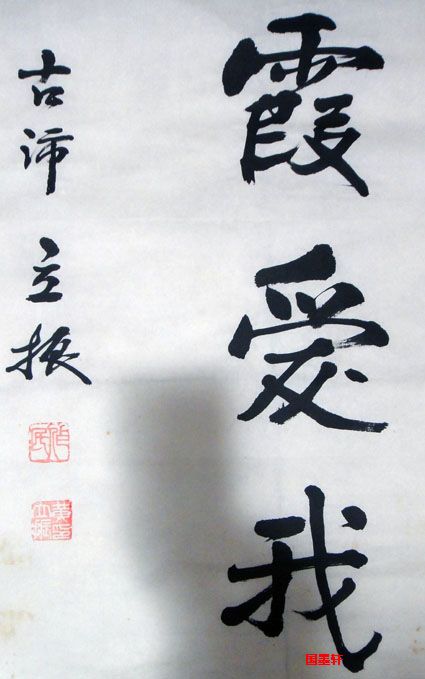 霞爱我
古沛 立振
国墨轩